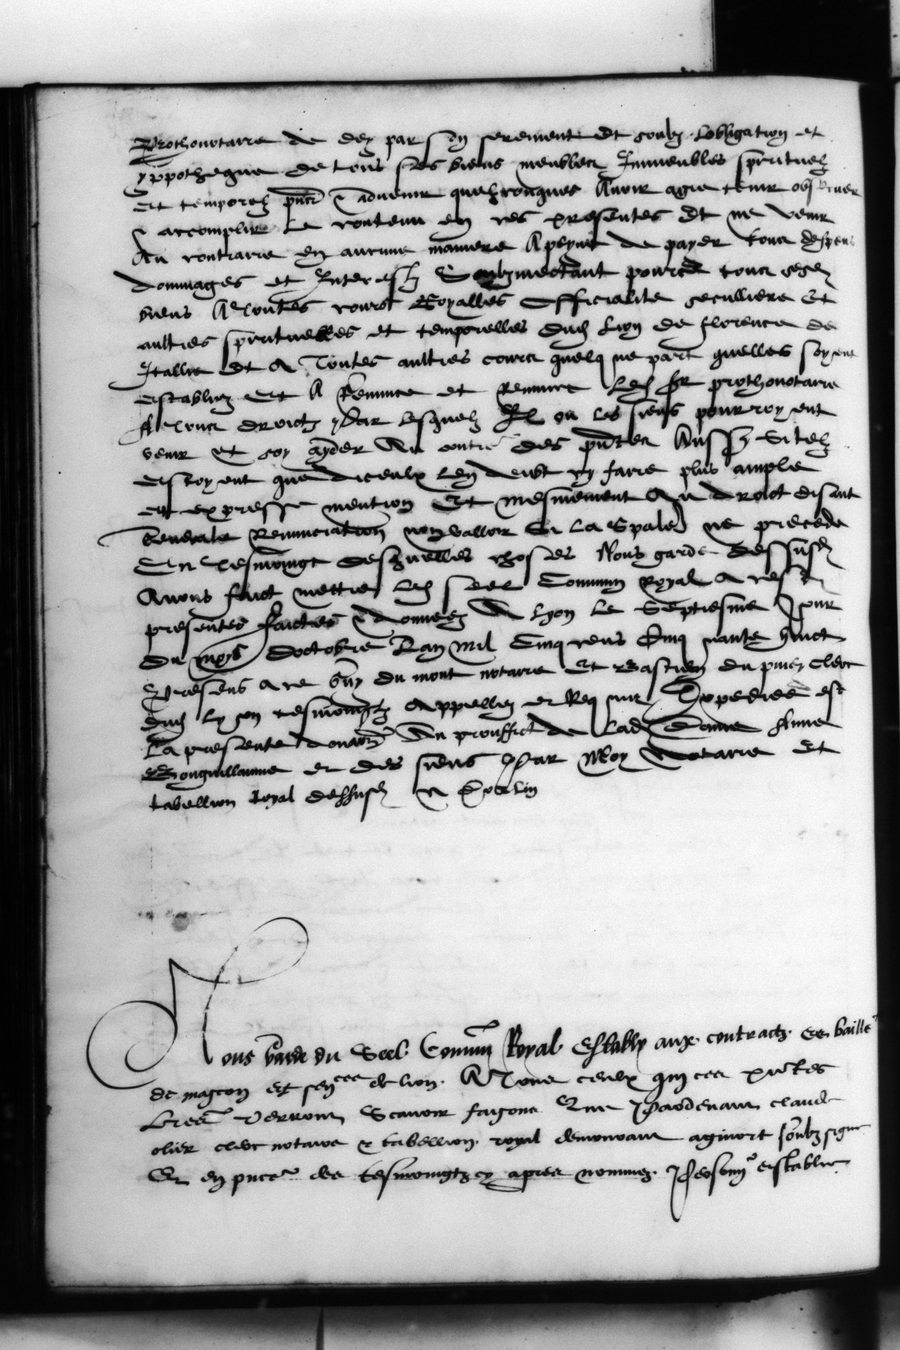 Prothonotaire de dez par son serement Et soubz Lobligation et
yppothegue de tous ses biens meubles Immeubles spirituelz
Et temporelz pntz & advenir quelzconques Avoir agre tenir observer
& accomplir Le contenu en ces presentes Et ne venir
Au contraire en aucune maniere A peyne de payer tous despens
dommages et Interestz Soubzmectant pource tous sesd
biens A toutes cours Royalles officialite seculliere Et
aultres spirituelles et temporelles dud Lyon de florence de
Itallie Et A Toutes aultres cours quelque part quelles soyent
establies Et A Renunce et Renunce Led Sr prothonotaire
A tous droictz Par lesquelz Il ou les siens pourroyent
venir et soy ayder Au contre des pntes Aussy Si telz
estoyent que diceulx Len deust cy faire plus ample
et expresse mention Et mesmement Au droict disant
generale Renunciation non valloir Si La Spale ne precede
En Tesmoingt desquelles choses Nous garde dessusd
Avons faict mettre Led Seel Commun Royal A cesd
presentes faictes & donnees A Lyon Le Septiesme Jour
du moys Doctobre Lan Mil Cinq cens Cinquante huict
Presens A ce Guy du mont notaire Et Bastien du puiez clerc
dud Lyon tesmoingtz Appellez et Requis Expediee est
La presente donaon Au prouffict de Lad Dame Anne
Bonguillaume et des siens Par Moy Notaire Et
tabellion royal dessusd
Nous garde du Seel Commun Royal Estably aux contractz es baille
de mascon et sencee de lion A Tous ceulx qui ces pntes
Lres Verront Scavoir faisons Que Pardevant claude
olier clerc notaire & tabellion royal demourant soubz signe
Et en pnce des tesmoingtz cy apres nommez establie